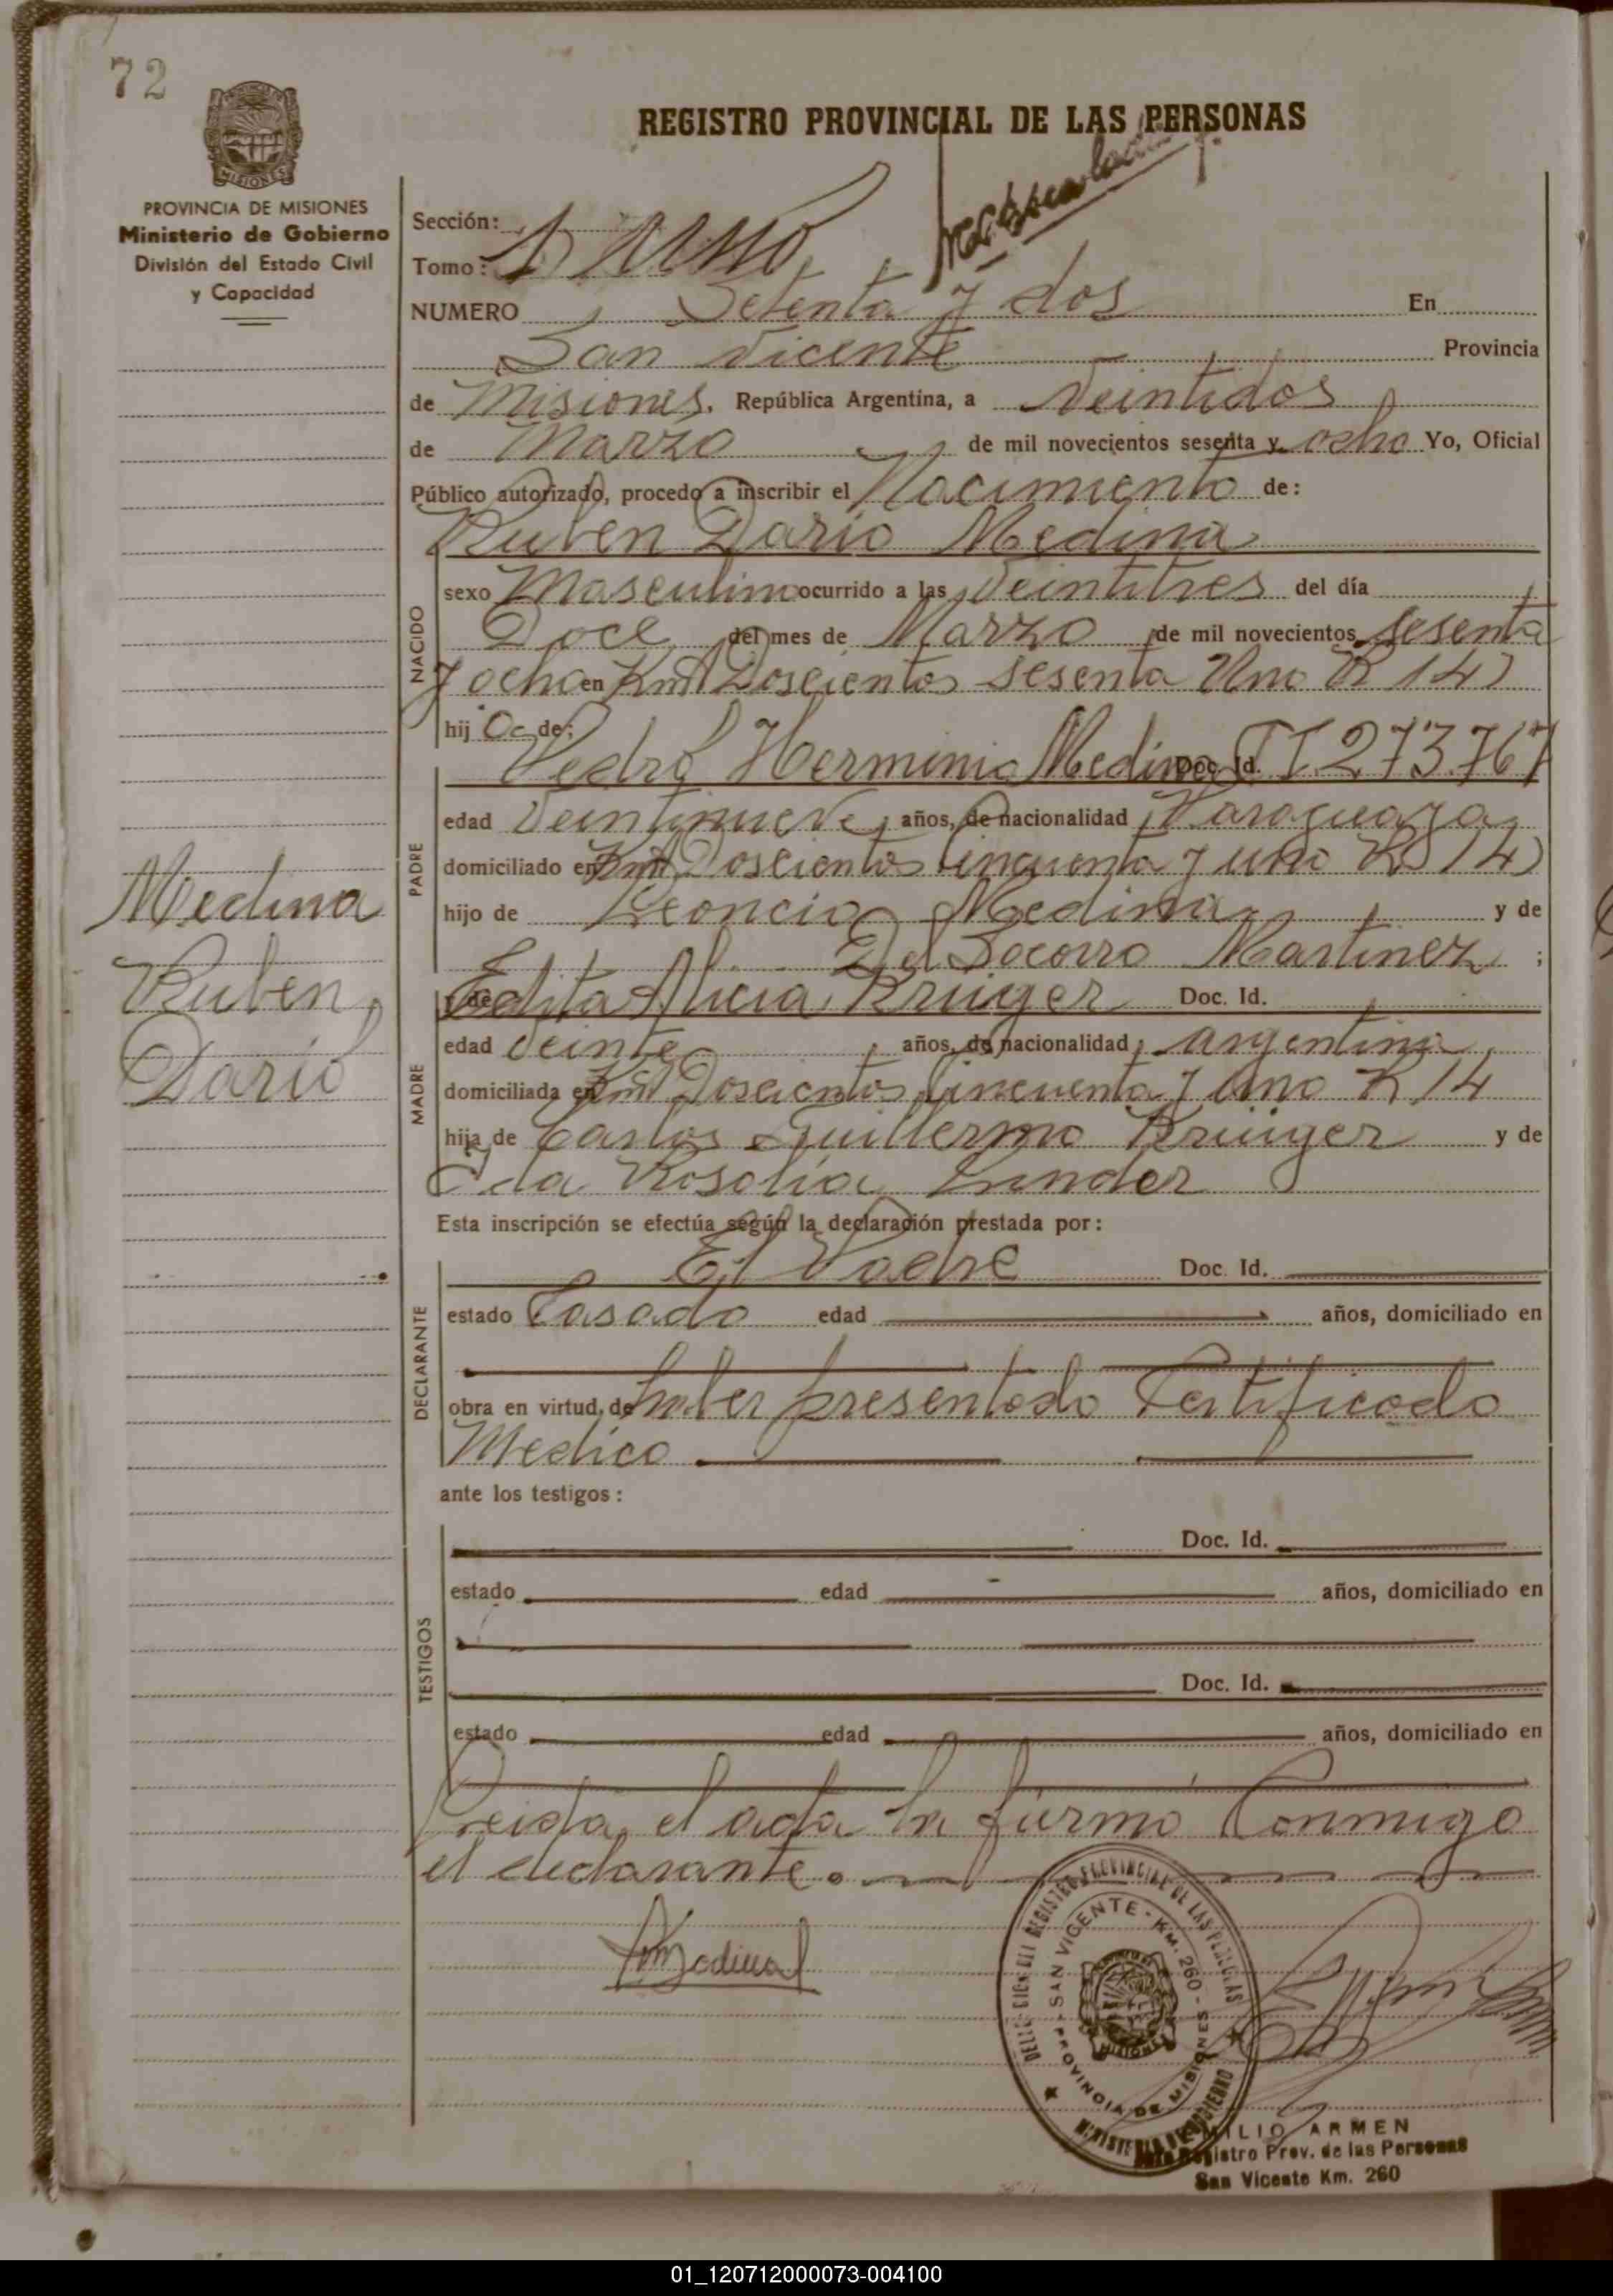 72
REGISTRO PROVINCIAL DE LAS PERSONAS
PROVINCIA DE MISIONES
Ministerio de Gobierno
División del Estado Civil
y Capacidad
Sección:
Tomo: 1) Uno
NUMERO Setenta y dos En
San Vicente Provincia
de Misiones, República Argentina, a Veintidos
de Marzo de mil novecientos sesenta y ocho Yo, Oficial
Público autorizado, procedo a inscribir el Nacimiento de:
Ruben Dario Medina
NACIDO
sexo Masculino ocurrido a las Veintitres del día
Doce del mes de Marzo de mil novecientos sesenta
y ocho en Km Doscientos sesenta Uno R 14)
hij o de:
PADRE
Pedro Herminio Medina Doc. Id. C I 273.767
edad Veintinueve años, de nacionalidad Paraguaya
domiciliado en Km Doscientos cincuenta y uno R 14)
hijo de Leoncio Medina y de
Del Socorro Martinez ;
MADRE
y de Edita Alicia Krüiger Doc. Id.
edad Veinte años, de nacionalidad argentina
domiciliada en Km Doscientos cincuenta y Uno R 14
hija de Carlos Guillermo Krüiger y de
Eda Rosalia Linder
Medina
Ruben
Dario
Esta inscripción se efectúa según la declaración prestada por:
DECLARANTE
El Padre Doc. Id.
estado Casado edad años, domiciliado en
obra en virtud de haber presentado Certificado
Medico
ante los testigos:
TESTIGOS
Doc. Id.
estado edad años, domiciliado en
Doc. Id.
estado edad años, domiciliado en
Leida el acta la firmó Conmigo
el declarante.
DELEGACION DEL REGISTRO PROVINCIAL DE LAS PERSONAS
SAN VICENTE - KM. 260 - PROVINCIA DE MISIONES
MISIONES
MINISTERIO DE GOBIERNO
EMILIO ARMEN
Registro Prov. de las Personas
San Vicente Km. 260
01_120712000073-004100